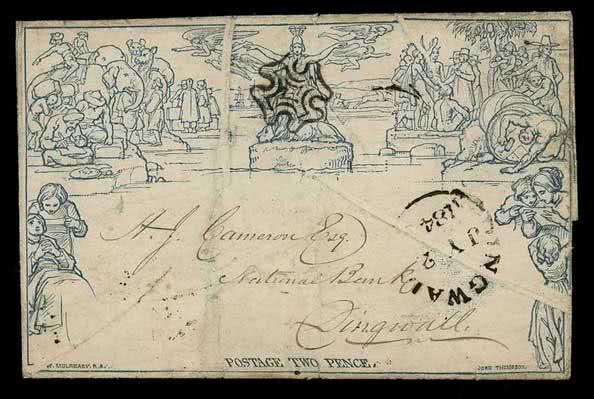 DINGWALL
2
JY
184
H. J. Cameron Esq.
National Bank
Dingwall.
POSTAGE TWO PENCE.
W. MULREADY. R.A.
JOHN THOMPSON.